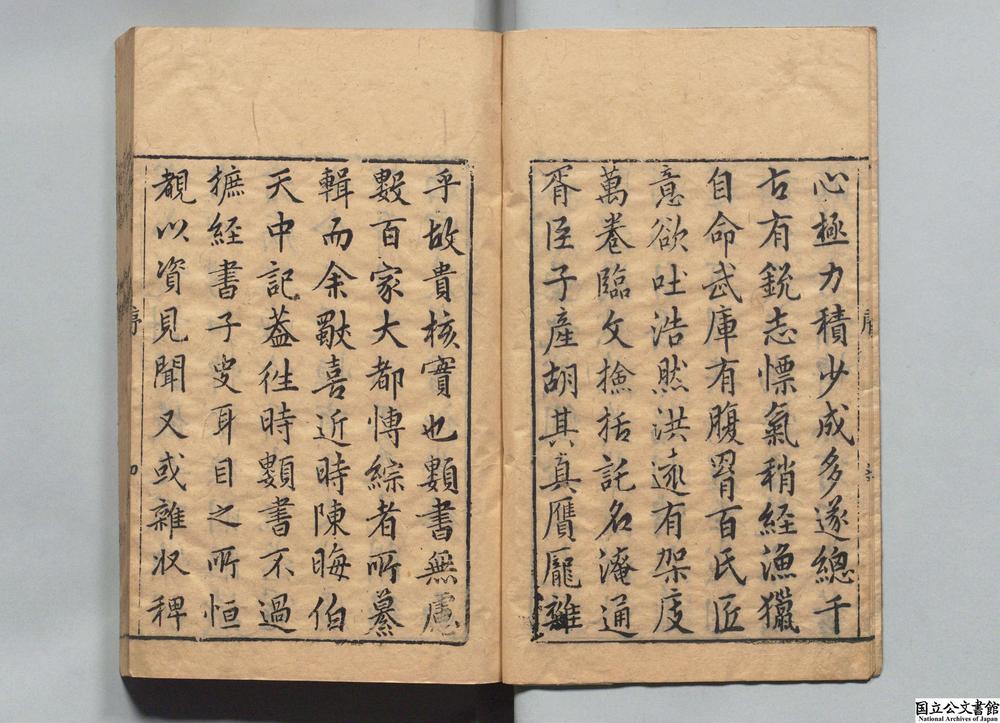 心極力積少成多遂總千
古有銳志慓氣稍經漁獵
自命武庫有腹胷百氏匠
意欲吐浩然洪遠有架庋
萬卷臨文撿括託名淹通
胥臣子產胡其真贋龎雜
乎故貴核實也類書無慮
數百家大都愽綜者所纂
輯而余獸喜近時陳晦伯
天中記葢徃時類書不過
摭經書子史耳目之所恒
覩以資見聞又或雜收稗
序
四
国立公文書館
National Archives of Japan